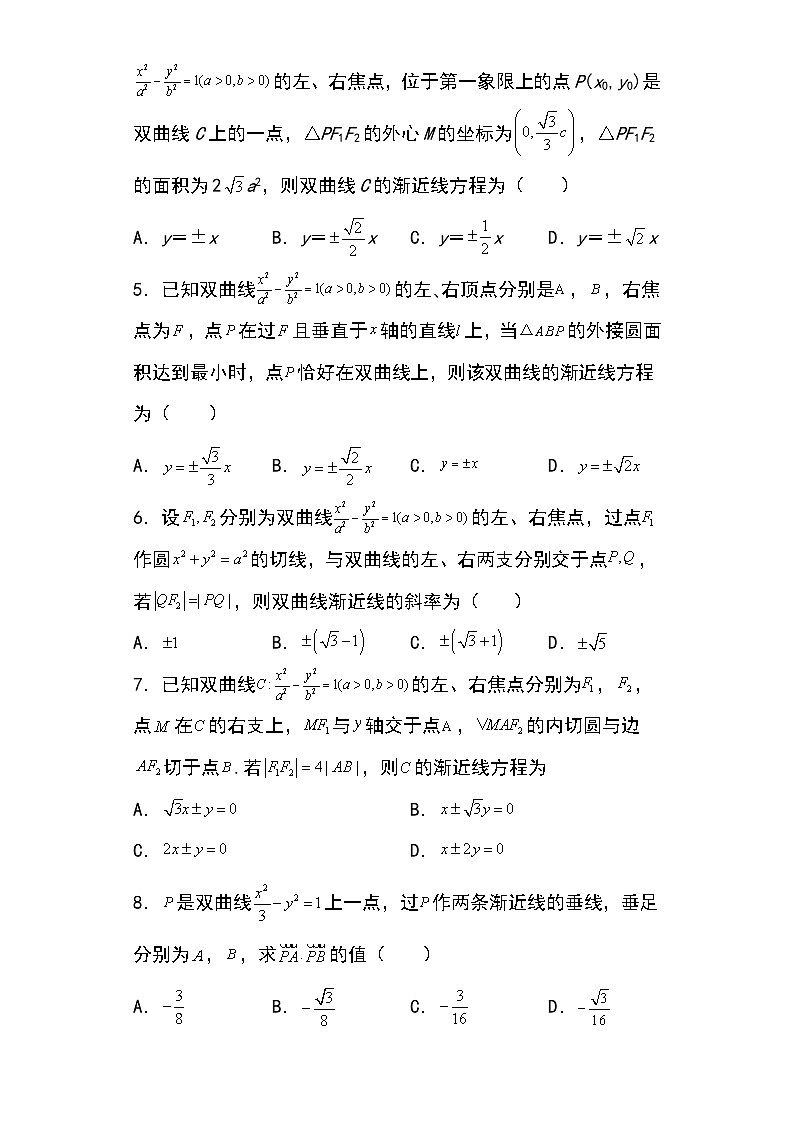 x²/a² - y²/b² = 1(a > 0, b > 0) 的左、右焦点，位于第一象限上的点 P(x₀, y₀) 是
双曲线 C 上的一点，△PF₁F₂ 的外心 M 的坐标为 (0, √3/3 c)，△PF₁F₂
的面积为 2√3a²，则双曲线 C 的渐近线方程为（　　）
A．y＝±x　B．y＝±√2/2 x　C．y＝±1/2 x　D．y＝±√2x
5．已知双曲线 x²/a² - y²/b² = 1(a > 0, b > 0) 的左、右顶点分别是 A，B，右焦
点为 F，点 P 在过 F 且垂直于 x 轴的直线 l 上，当 △ABP 的外接圆面
积达到最小时，点 P 恰好在双曲线上，则该双曲线的渐近线方程
为（　　）
A．y = ±√3/3 x　B．y = ±√2/2 x　C．y = ±x　D．y = ±√2x
6．设 F₁, F₂ 分别为双曲线 x²/a² - y²/b² = 1(a > 0, b > 0) 的左、右焦点，过点 F₁
作圆 x² + y² = a² 的切线，与双曲线的左、右两支分别交于点 P, Q，
若 |QF₂| =| PQ |，则双曲线渐近线的斜率为（　　）
A．±1　B．±(√3 - 1)　C．±(√3 + 1)　D．±√5
7．已知双曲线 C: x²/a² - y²/b² = 1(a > 0, b > 0) 的左、右焦点分别为 F₁，F₂，
点 M 在 C 的右支上，MF₁ 与 y 轴交于点 A，∨MAF₂ 的内切圆与边
AF₂ 切于点 B．若 |F₁F₂| = 4 | AB |，则 C 的渐近线方程为
A．√3x ± y = 0　B．x ± √3y = 0
C．2x ± y = 0　D．x ± 2y = 0
8．P 是双曲线 x²/3 - y² = 1 上一点，过 P 作两条渐近线的垂线，垂足
分别为 A，B，求 PA · PB 的值（　　）
A．-3/8　B．-√3/8　C．-3/16　D．-√3/16